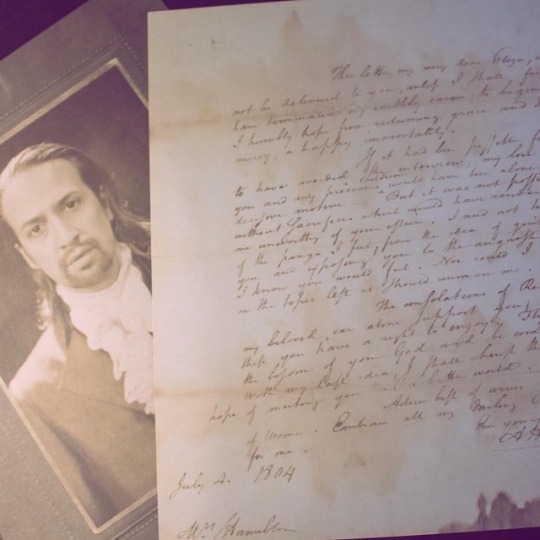 This letter, my very dear Eliza, 
not be delivered to you, unless I shall
have terminated my earthly career; to begin
I humbly hope from redeeming grace and
mercy, a happy immortality.
If it had been possible
to have avoided the interview, my love
you and my precious would have been alone
motive. But it was not
without sacrifices which would have rendered
me unworthy of your esteem. I need not
of the pangs I feel, from the idea of
you and exposing you to the anguish
I know you would feel. Nor could I
on the topic lest it should unman me.
The consolations of
my beloved, can alone support you;
you have a right to enjoy.
the bosom of your God and be
with my last idea; I shall cherish the
hope of meeting you in a better world.
Adieu best of wives
of Women. Embrace all my darling
for me.
July 4. 1804
Mrs Hamilton